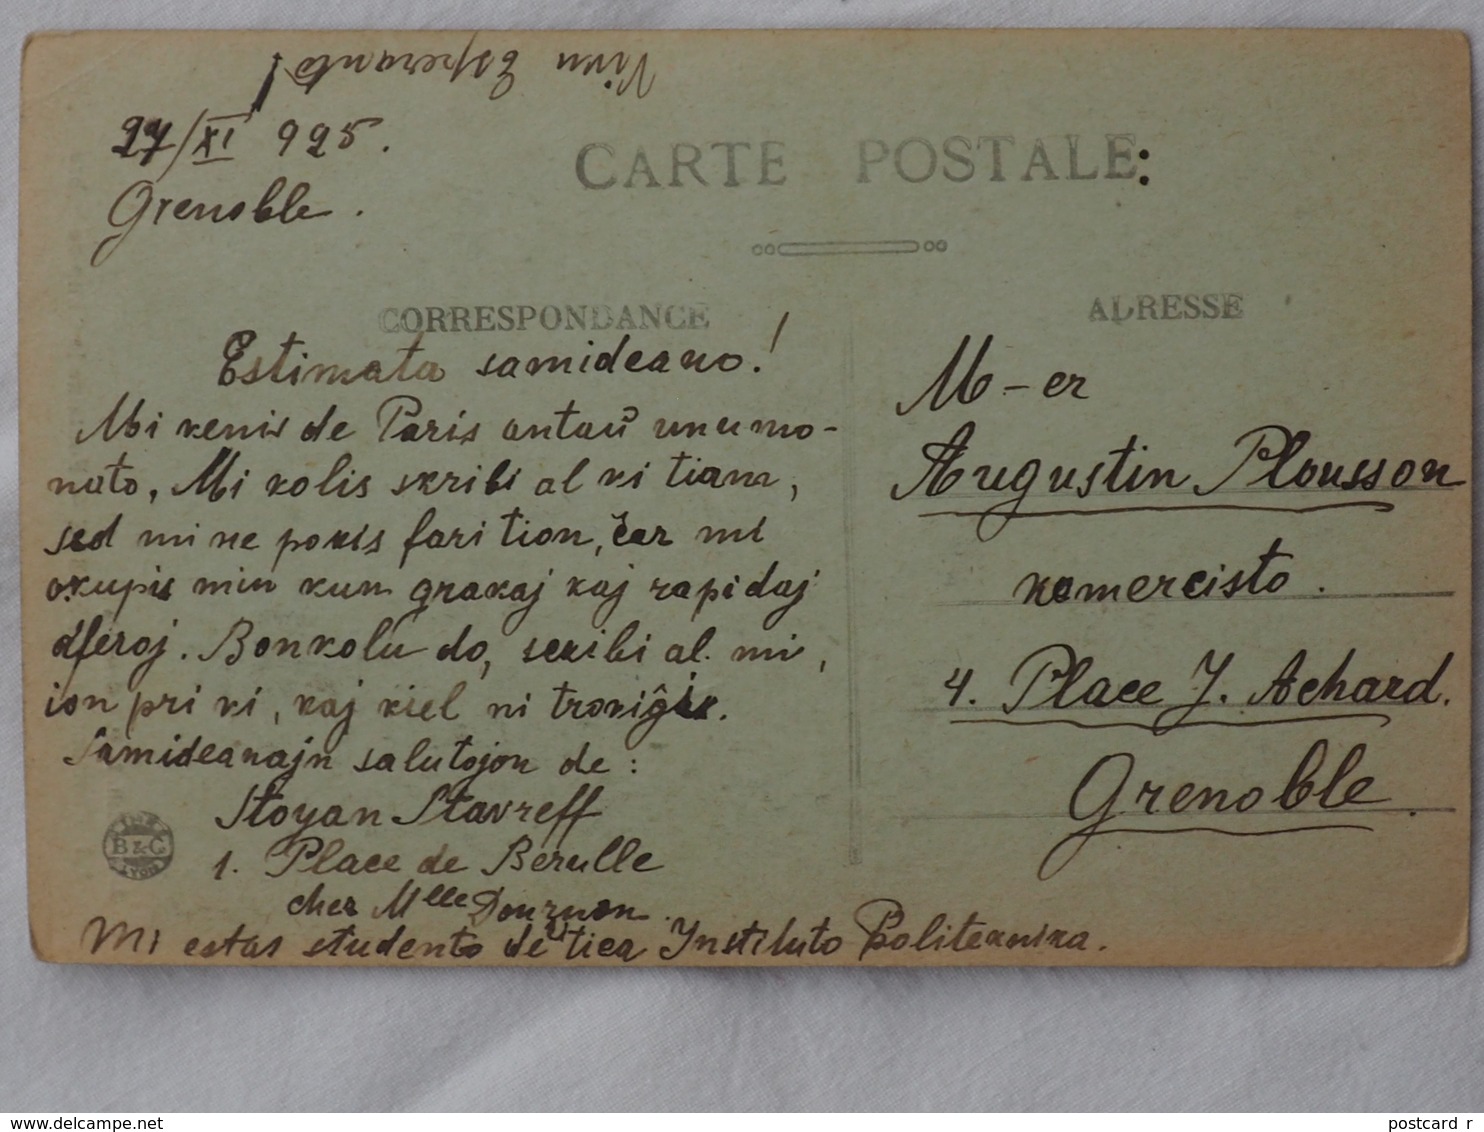 Vivu Esperanto!
27/XI 925.
Grenoble.
CARTE POSTALE:
CORRESPONDANCE
ADRESSE
Estimata samideano!
Mi venis de Paris antaŭ unu mo-
nato, Mi volis skribi al vi tiam,
sed mi ne povis fari tion, ĉar mi
okupis min kun gravaj kaj rapidaj
aferoj. Bonvolu do, skribi al mi,
ion pri vi, kaj kiel vi troviĝis.
Samideanajn salutojn de:
Stoyan Stavreff
1. Place de Berulle
chez Mlle Dournon.
Mi estas studento de l'tiea Instituto Politeknika.
M-er
Augustin Plousson
komercisto.
4. Place J. Achard.
Grenoble
B & C
LYON
postcard_r
www.delcampe.net